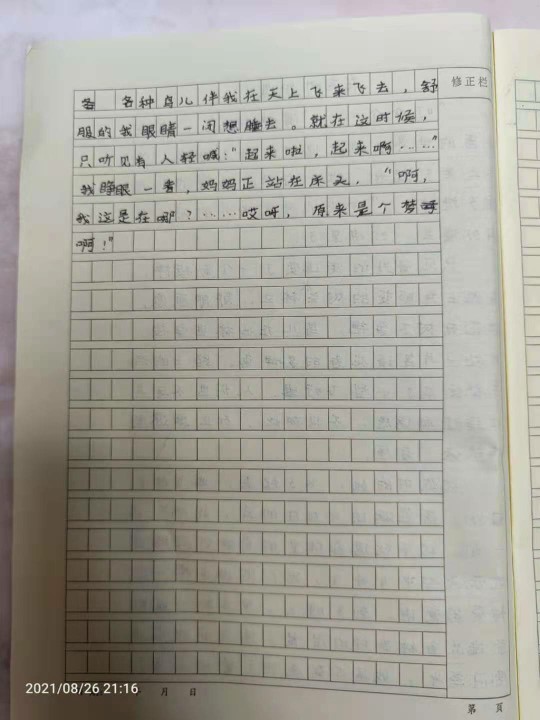 各 各种鸟儿伴我在天上飞来飞去，舒
修正栏
服的我眼睛一闭想睡去。就在这时候，
只听见有人轻喊：“起来啦，起来啊……”
我睁眼一看，妈妈正站在床头。“啊，
我这是在哪？……哎呀，原来是个梦
啊！”
2021/08/26 21:16
月 日
第 页